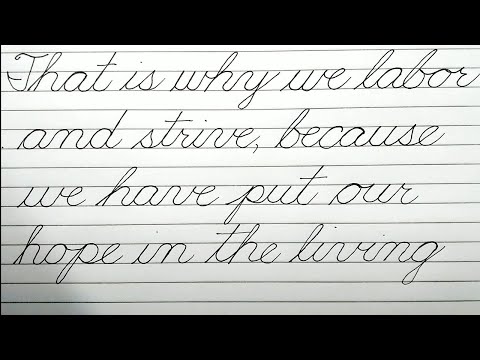 That is why we labor
and strive, because
we have put our
hope in the living